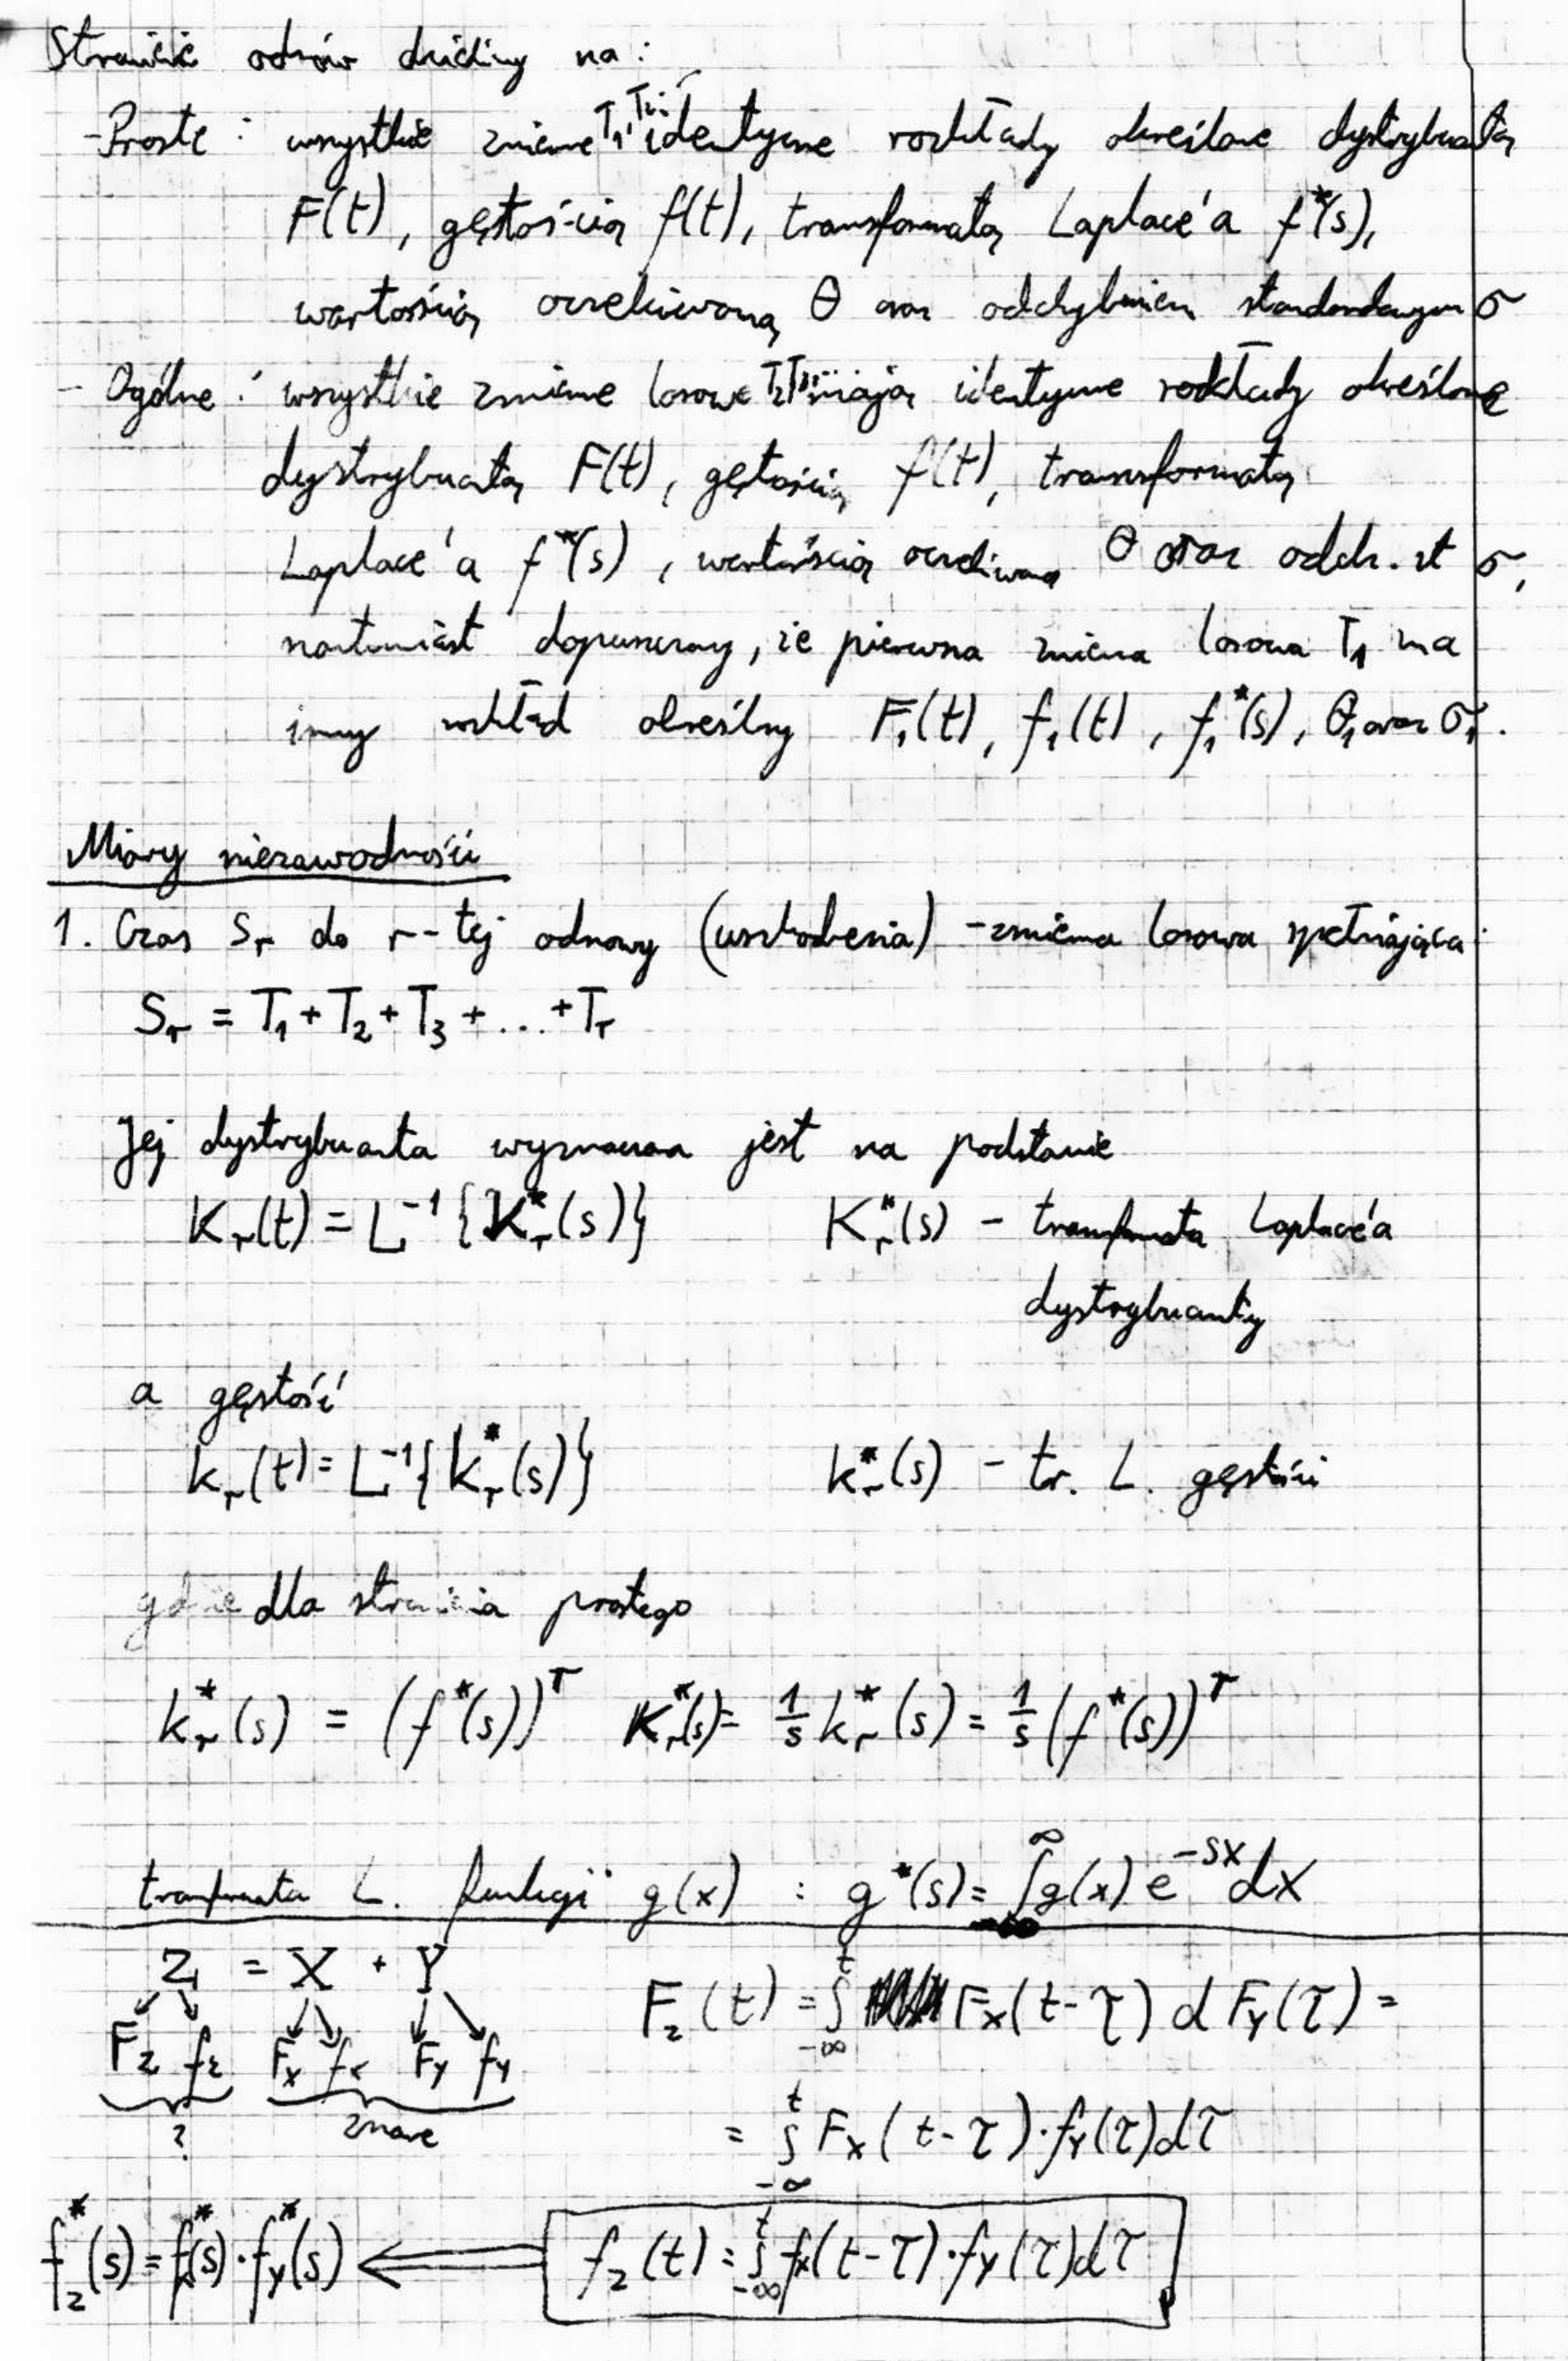 Strumienie odnów dzielimy na:
- Proste: wszystkie zmienne T₁, T₂... identyczne rozkłady określone dystrybuantą
F(t), gęstością f(t), transformatą Laplace'a f*(s),
wartością oczekiwaną θ oraz odchyleniem standardowym σ
- Ogólne: wszystkie zmienne losowe T₂, T₃... mają identyczne rozkłady określone
dystrybuantą F(t), gęstością f(t), transformatą
Laplace'a f*(s), wartością oczekiwaną θ oraz odch. st σ,
natomiast dopuszczamy, że pierwsza zmienna losowa T₁ ma
inny rozkład określny F₁(t), f₁(t), f₁*(s), θ₁ oraz σ₁.
Miary niezawodności
1. Czas Sᵣ do r-tej odnowy (uszkodzenia) - zmienna losowa spełniająca:
Sᵣ = T₁ + T₂ + T₃ + ... + Tᵣ
Jej dystrybuanta wyznaczana jest na podstawie
Kᵣ(t) = L⁻¹{Kᵣ*(s)} Kᵣ*(s) - transformata Laplace'a
dystrybuanty
a gęstość
kᵣ(t) = L⁻¹{kᵣ*(s)} kᵣ*(s) - tr. L. gęstości
gdzie dla strumienia prostego
kᵣ*(s) = (f*(s))ʳ Kᵣ*(s) = 1/s kᵣ*(s) = 1/s (f*(s))ʳ
transformata L. funkcji g(x) : g*(s) = ∫_{-∞}^{∞} g(x) e^{-sx} dx
Z = X + Y F_z(t) = ∫_{-∞}^{t} F_x(t-τ) d F_y(τ) =
F_z f_z F_x f_x F_y f_y
? znane = ∫_{-∞}^{t} F_x(t-τ)·f_y(τ)dτ
f_z*(s) = f_x*(s)·f_y*(s) ⇐ f_z(t) = ∫_{-∞}^{t} f_x(t-τ)·f_y(τ)dτ